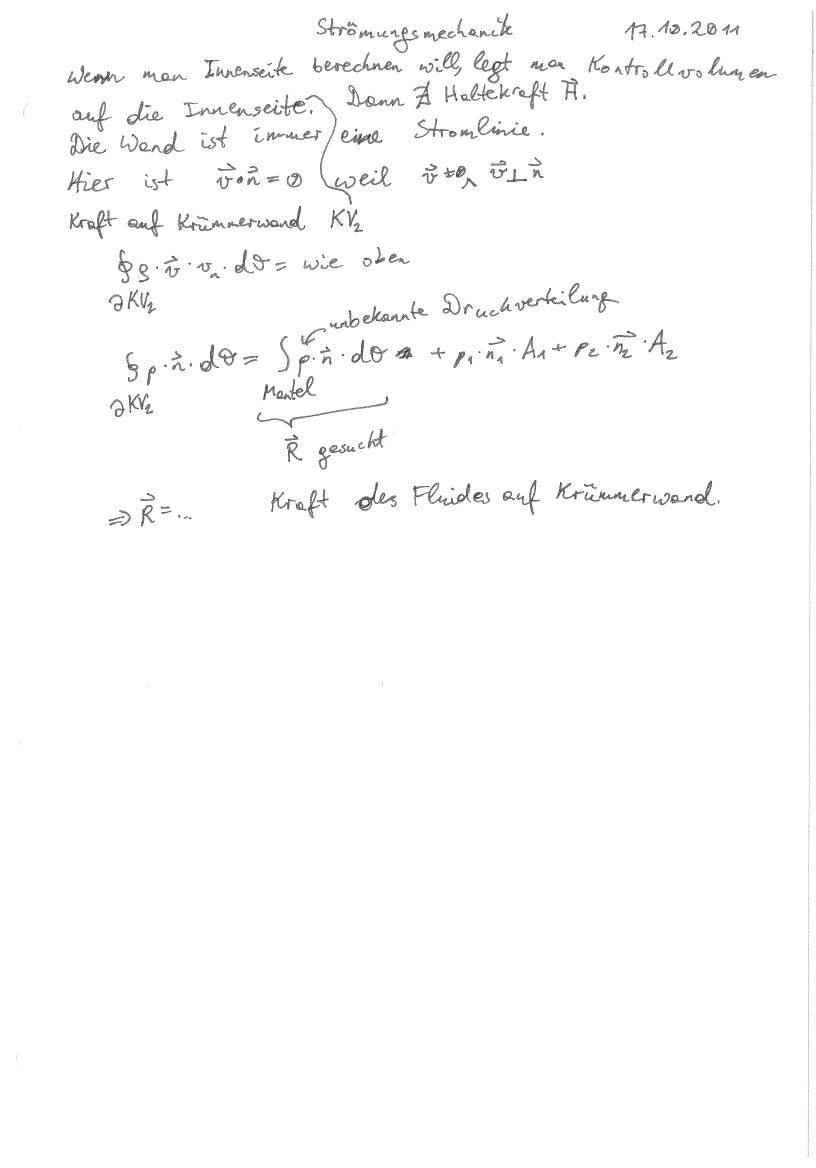 Strömungsmechanik 17.10.2011
Wenn man Innenseite berechnen will, legt man Kontrollvolumen
auf die Innenseite. Dann ∄ Haltekraft H⃗.
Die Wand ist immer eine Stromlinie.
Hier ist v⃗•n⃗ = 0 weil v⃗≠0 ∧ v⃗⊥n⃗
Kraft auf Krümmerwand KV₂
∮ρ·v⃗·vₙ·dO = wie oben
∂KV₂
unbekannte Druckverteilung
∮p·n⃗·dO = ∫p·n⃗·dO + p₁·n⃗₁·A₁ + p₂·n⃗₂·A₂
∂KV₂ Mantel
R⃗ gesucht
⇒ R⃗ = ... Kraft des Fluides auf Krümmerwand.